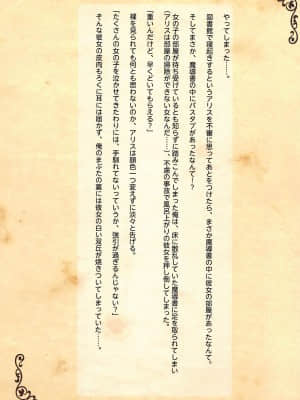 やってしまった……。
図書館で寝起きするというアリスを不審に思ってあとをつけたら、まさか魔導書の中に彼女の部屋があったなんて。
そしてまさか、魔導書の中にバスタブがあったなんてー？
女の子の部屋が待ち受けているとも知らずに踏みこんでしまった俺は、床に散乱していた魔導書に足を取られてしまい
（アリスは部屋の掃除ができない女なんだ……）、不慮の事故で風呂上がりの彼女を押し倒してしまった。
「重いんだけど、早くどいてもらえる？」
裸を見られても何とも思わないのか、アリスは顔色一つ変えずに淡々と告げる。
「たくさんの女の子を泣かせてきたわりには、手馴れてないっていうか、強引が過ぎるんじゃない？」
そんな彼女の皮肉もろくに耳には届かず、俺のまぶたの裏には彼女の白い双丘が焼きついてしまっていた……。